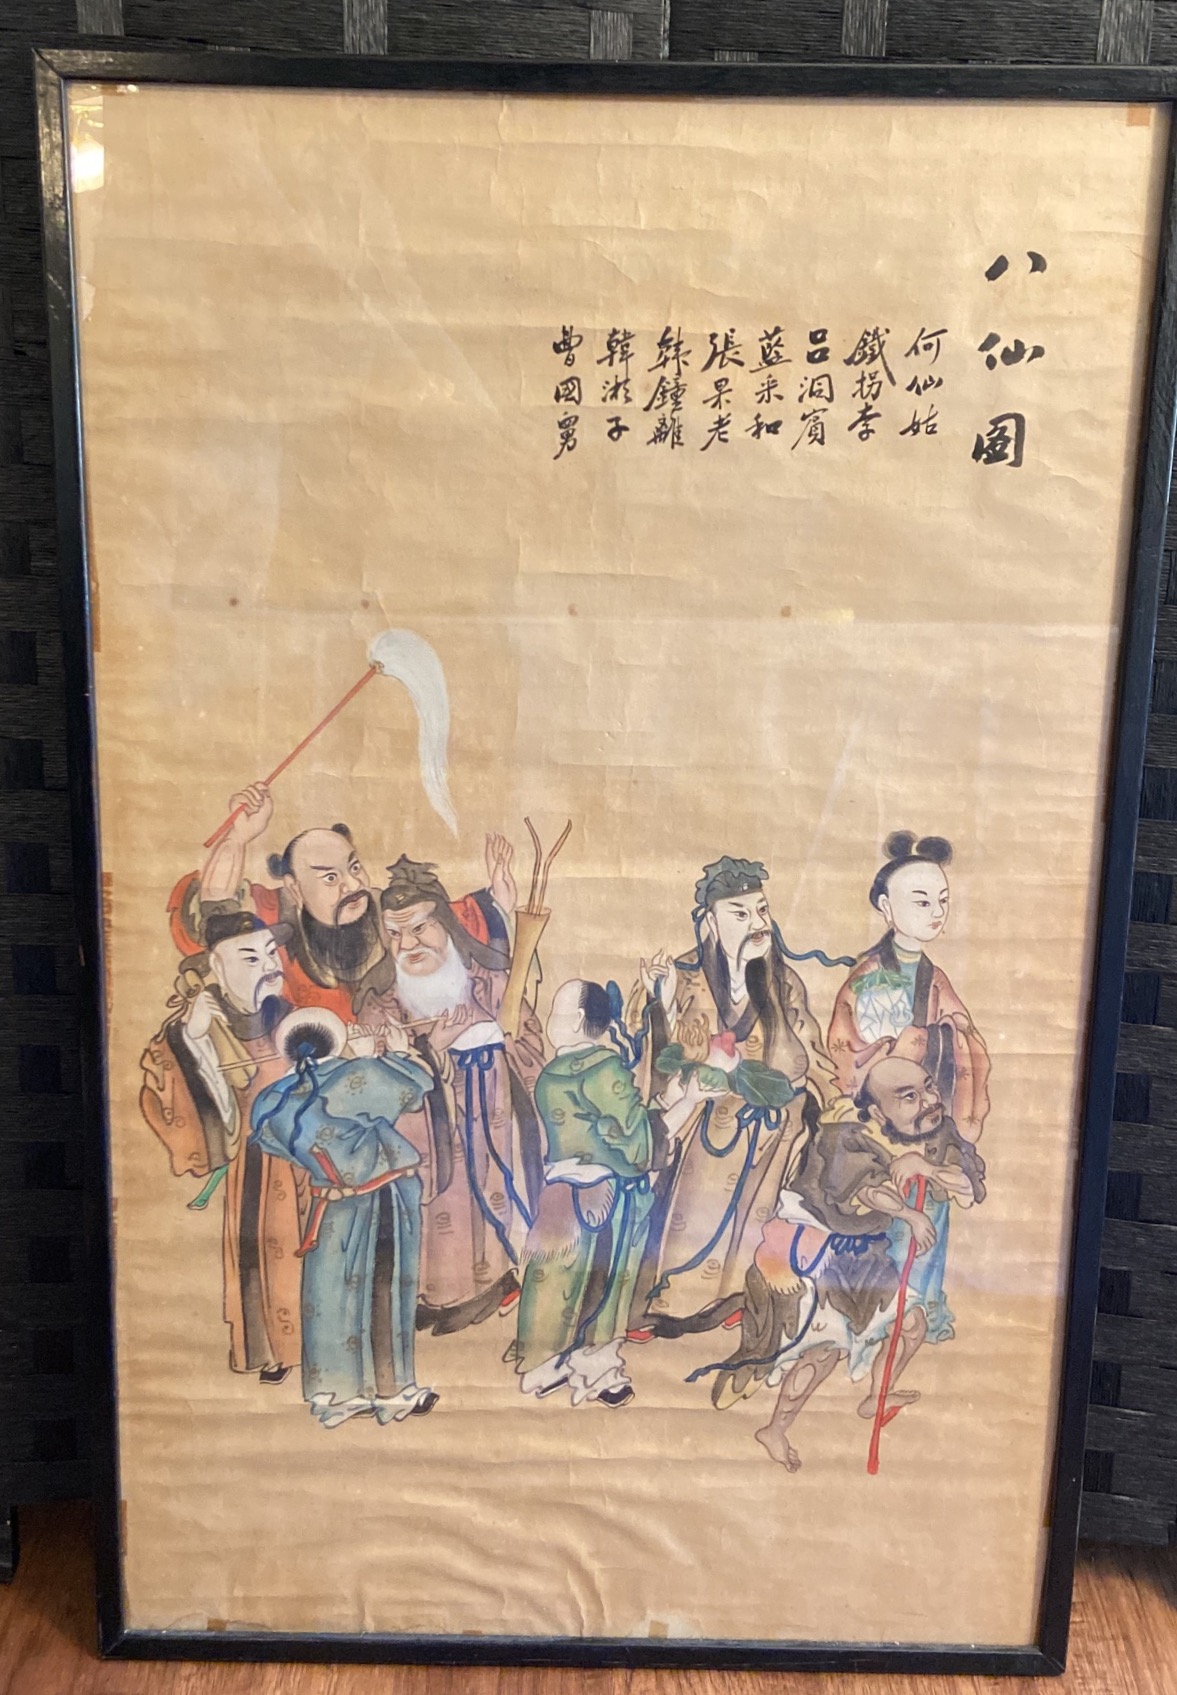 八仙圖
何仙姑
鐵拐李
呂洞賓
藍采和
張果老
韩鍾離
韓湘子
曹國舅